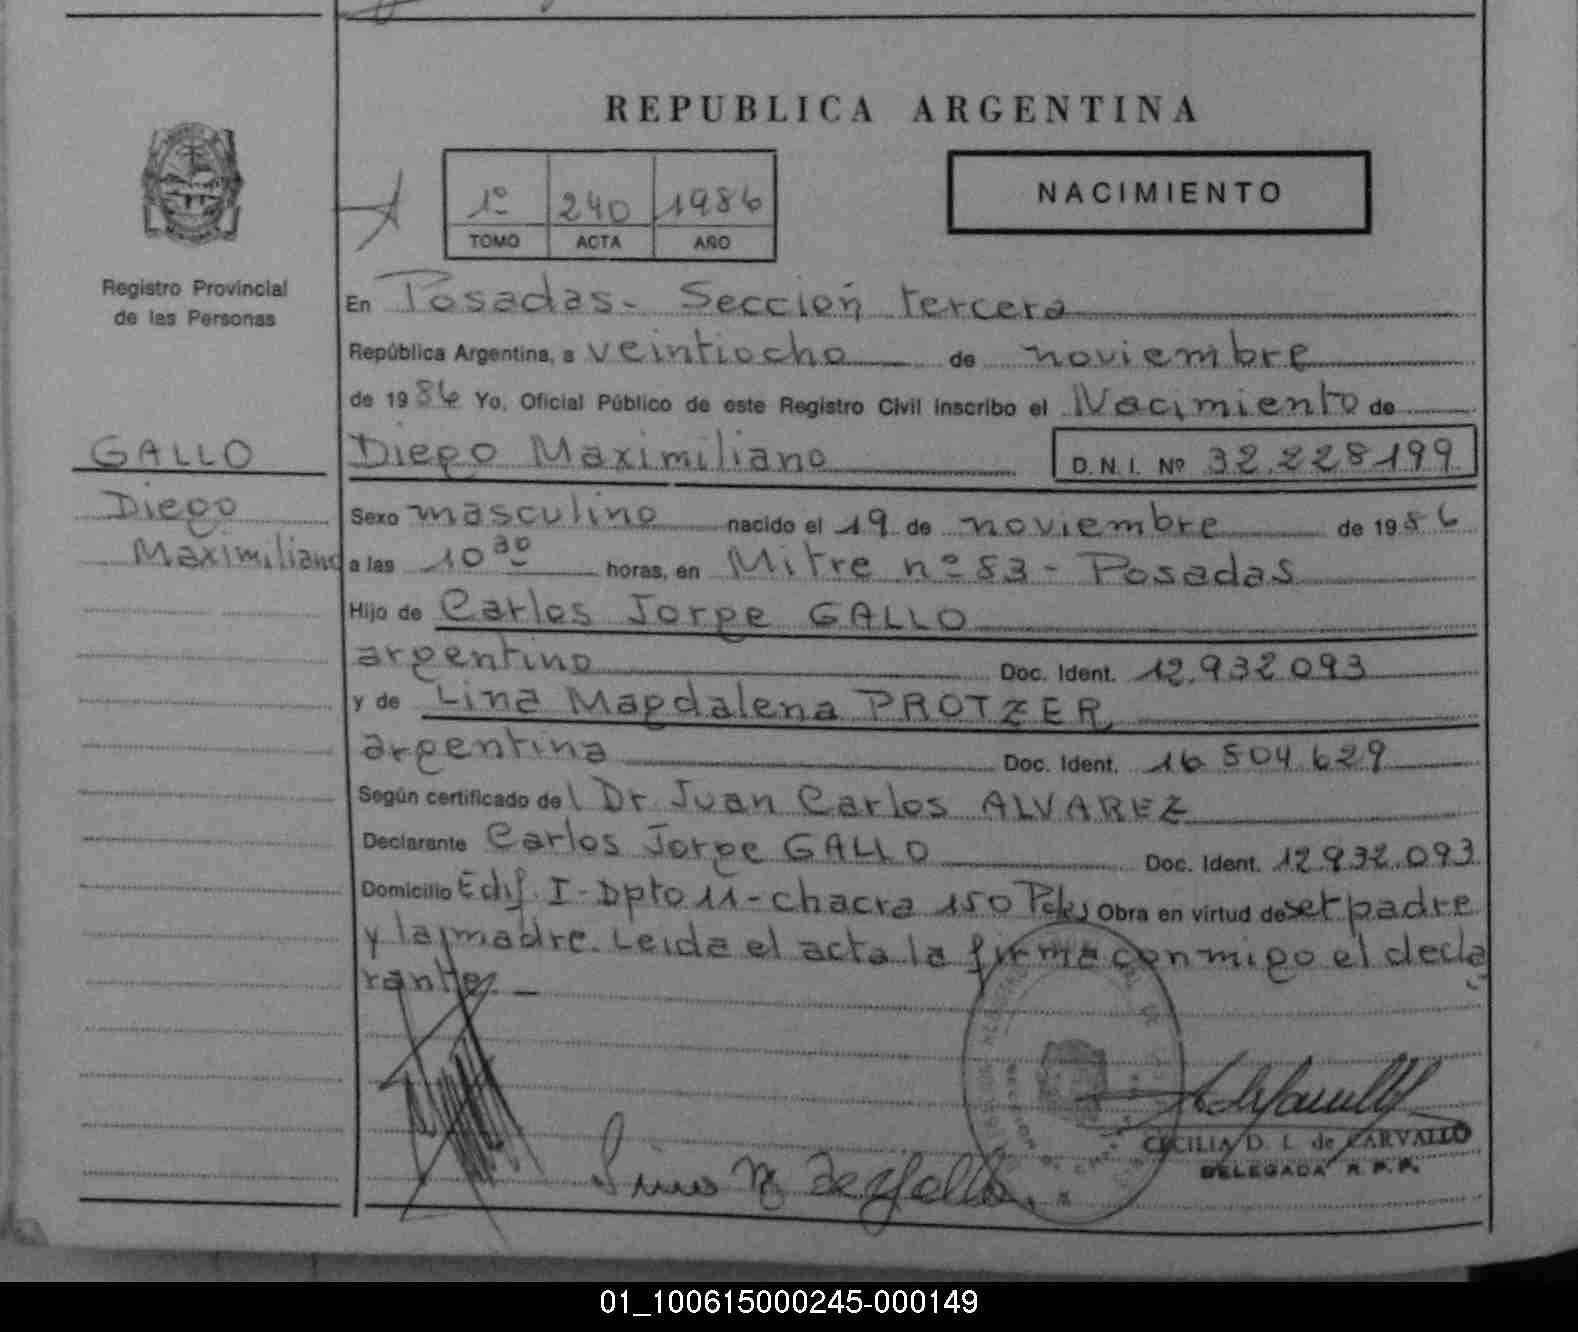 REPUBLICA ARGENTINA
1º 240 1986
TOMO ACTA AÑO
NACIMIENTO
Registro Provincial
de las Personas
En Posadas - Sección tercera
República Argentina, a veintiocho de noviembre
de 1986 Yo, Oficial Público de este Registro Civil inscribo el Nacimiento de
GALLO
Diego Maximiliano D.N.I. Nº 32.228.199
Diego
Maximiliano
Sexo masculino nacido el 19 de noviembre de 1986
a las 10 30 horas, en Mitre nº 53 - Posadas
Hijo de Carlos Jorge GALLO
argentino Doc. Ident. 12.932.093
y de Lina Magdalena PROTZER
argentina Doc. Ident. 16 504 629
Según certificado del Dr Juan Carlos ALVAREZ
Declarante Carlos Jorge GALLO Doc. Ident. 12.932.093
Domicilio Edif. I - Dpto 11 - chacra 150 Pdas Obra en virtud de ser padre
y la madre. Leida el acta la firma conmigo el decla
rante. -
CECILIA D. L. de CARVALLO
DELEGADA R. P. P.
01_100615000245-000149